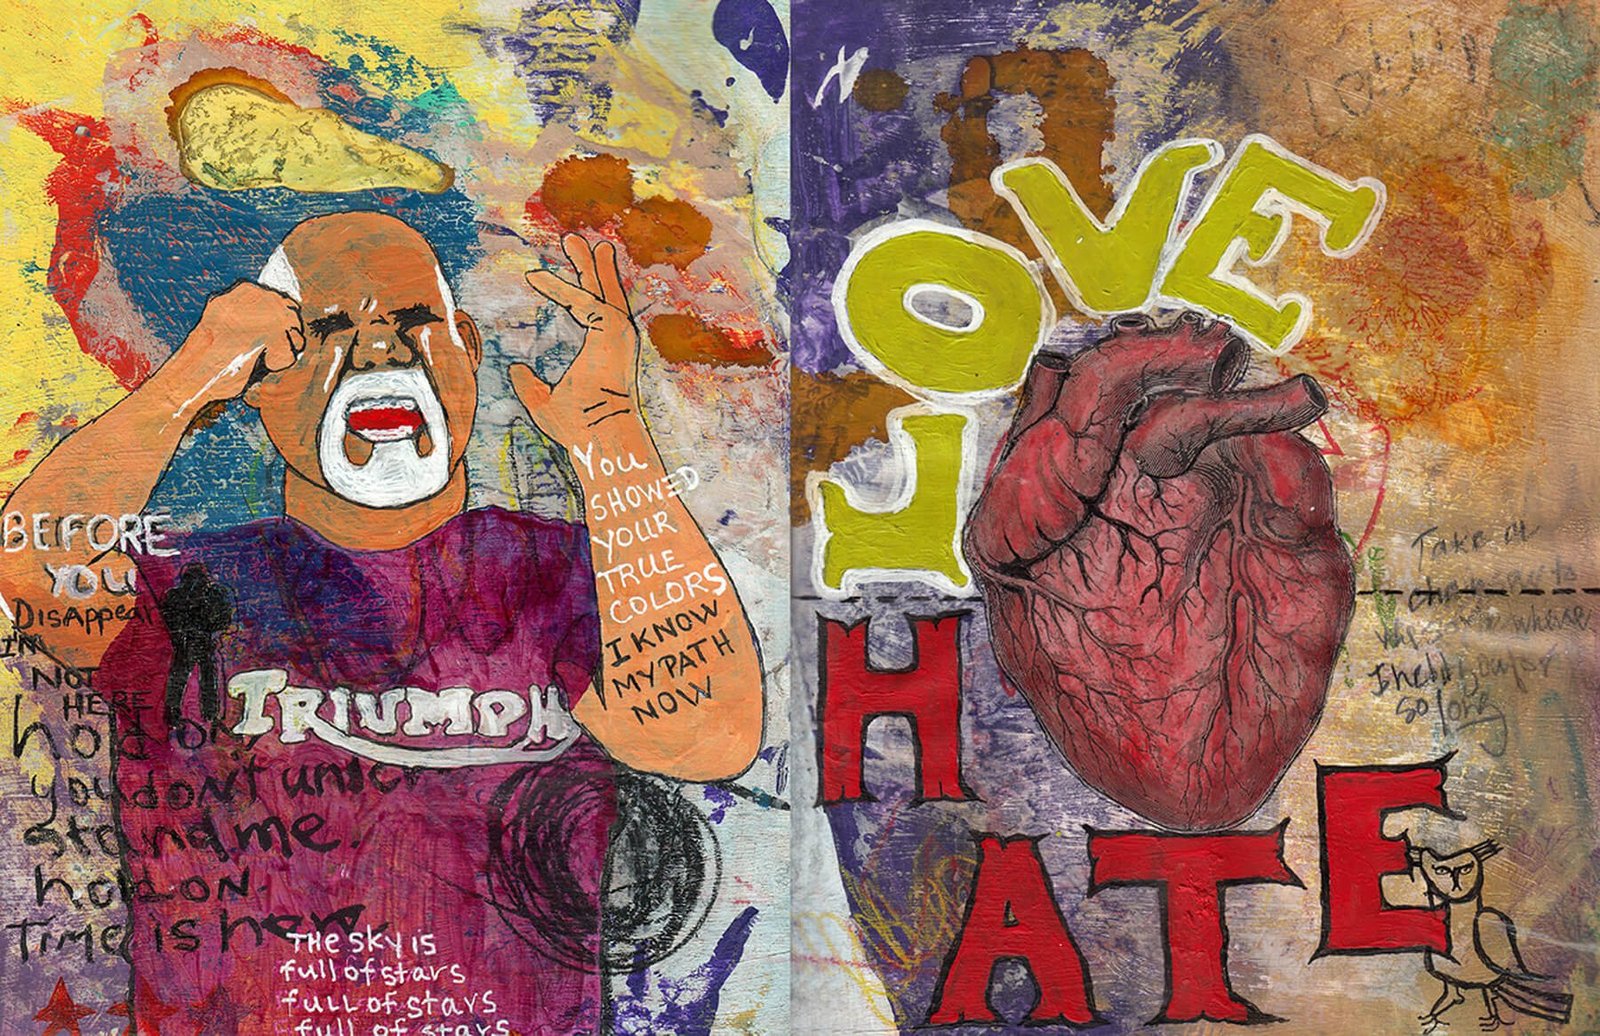 BEFORE
YOU
DISAPPEAR
I'M
NOT
HERE
hold on,
you don't under
stand me.
hold on.
Time is here
TRIUMPH
YOU
SHOWED
YOUR
TRUE
COLORS
I KNOW
MY PATH
NOW
THE SKY IS
full of stars
full of stars
full of stars
LOVE
HATE
Take a
whose
I held you for
so long